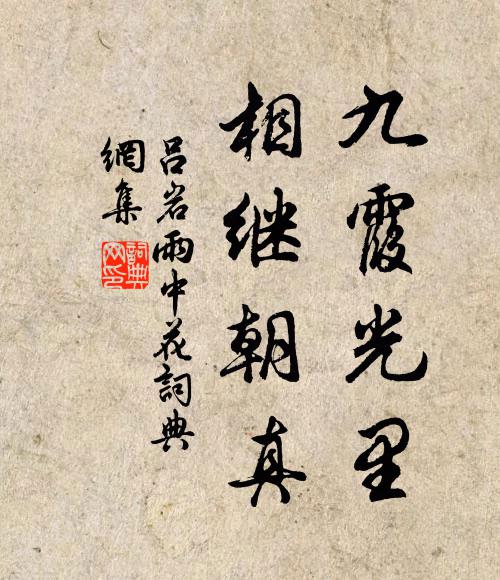 九霞光里
相继朝真
吕岩雨中花詞典
網集
詞典
网印